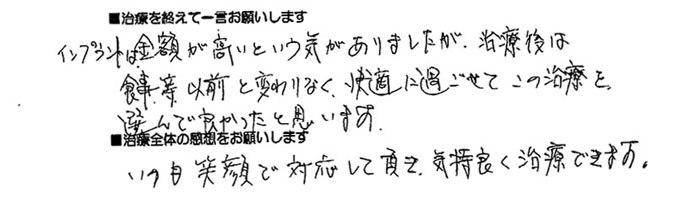 ■治療を終えて一言お願いします
インプラントは金額が高いという気がありましたが、治療後は
食事等以前と変わりなく、快適に過ごせてこの治療を
選んで良かったと思います。
■治療全体の感想をお願いします
いつも笑顔で対応して頂き、気持良く治療できます。